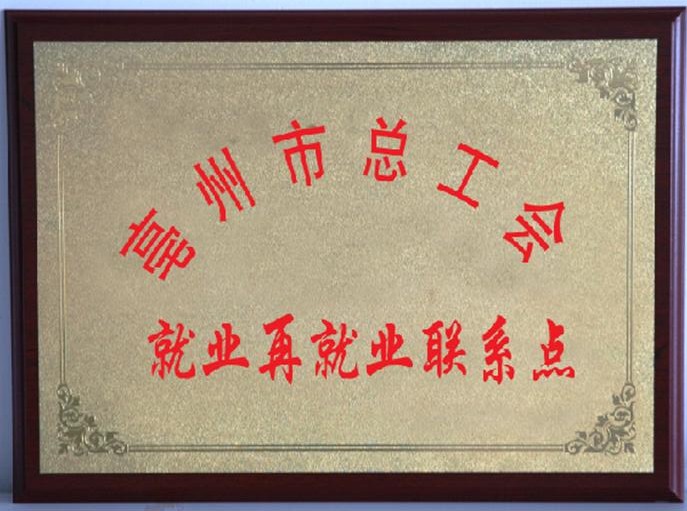 亳州市总工会
就业再就业联系点